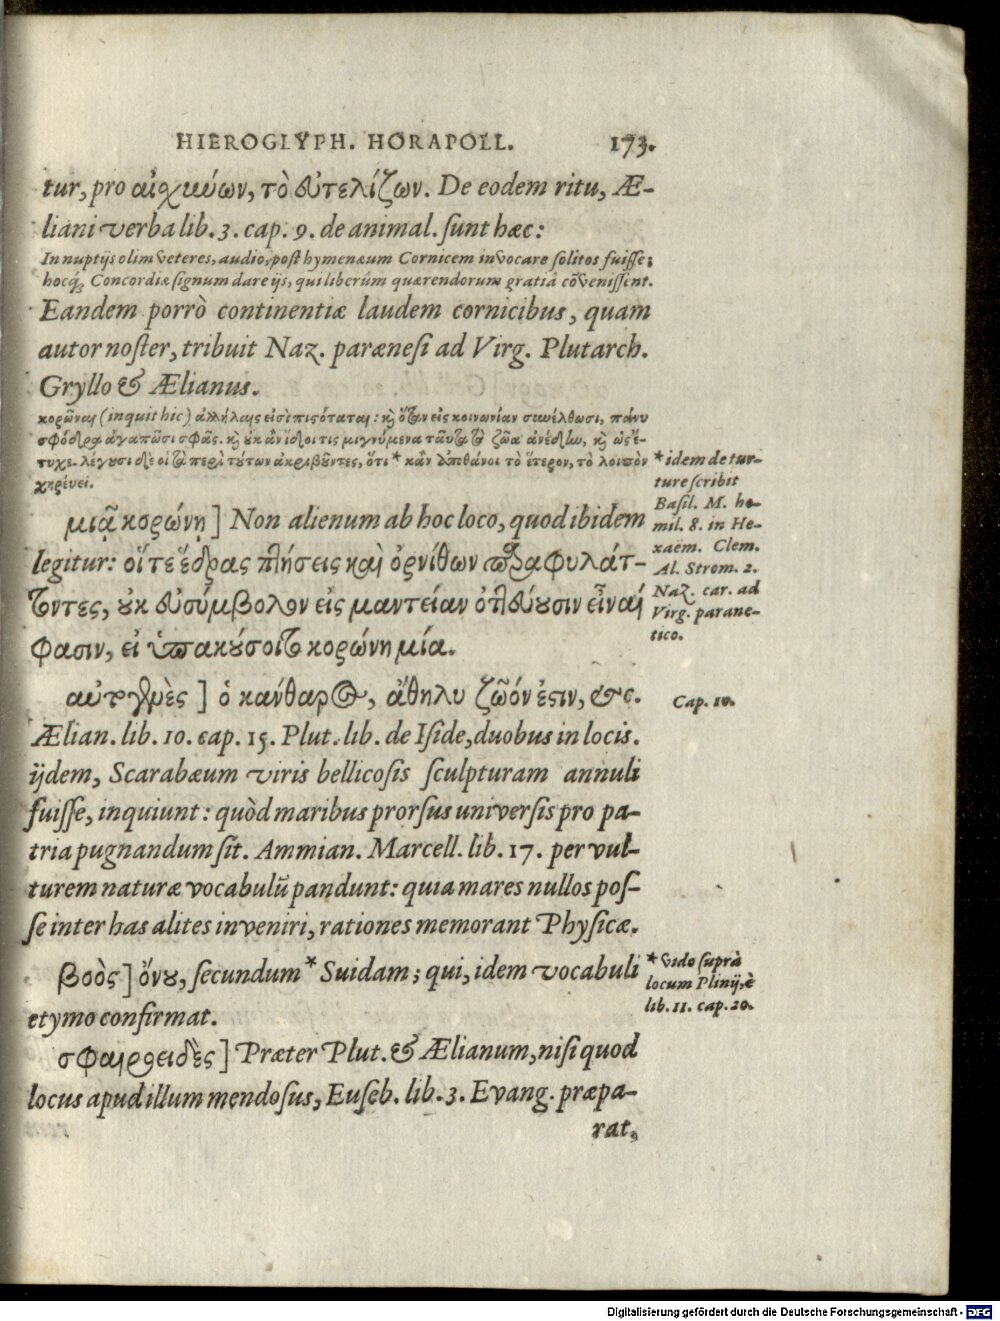 HIEROGLYPH. HORAPOLL. 173.
tur, pro αἰσχύων, τὸ εὐτελίζων. De eodem ritu, Æ-
liani verba lib. 3. cap. 9. de animal. sunt hæc:
In nuptijs olim veteres, audio, post hymenæum Cornicem invocare solitos fuisse;
hocq́; Concordiæ signum dare ijs, qui liberûm quærendorum gratiâ cõvenissent.
Eandem porrò continentiæ laudem cornicibus, quam
autor noster, tribuit Naz. parænesi ad Virg. Plutarch.
Gryllo & Ælianus.
κορῶναι (inquit hic) ἀλλήλαις εἰσὶ πιστόταται: καὶ ὅταν εἰς κοινωνίαν συνέλθωσι, πάνυ
σφόδρα ἀγαπῶσι σφᾶς. καὶ οὐκ ἂν ἴδοι τις μιγνύμενα ταῦτα τὰ ζῶα ἀνέδην, καὶ ὡς ἔ-
τυχε. λέγουσι δὲ οἱ τὰ περὶ τούτων ἀκριβοῦντες, ὅτι * κἂν ἀποθάνοι τὸ ἕτερον, τὸ λοιπὸν
χηρεύει.
* idem de tur-
ture scribit
Basil. M. ho-
mil. 8. in He-
xaëm. Clem.
Al. Strom. 2.
Naz. car. ad
Virg. parane-
tico.
μιᾷ κορώνῃ] Non alienum ab hoc loco, quod ibidem
legitur: οἵ τε ἕδρας πτήσεις καὶ ὀρνίθων παραφυλάτ-
τοντες, οὐκ εὐσύμβολον εἰς μαντείαν ὀπτεύουσιν εἶναί
φασιν, εἰ ὑπακούσοιτο κορώνη μία.
αὐτογενὲς] ὁ κάνθαρος, ἄθηλυ ζῶόν ἐστιν, &c.
Cap. 10.
Ælian. lib. 10. cap. 15. Plut. lib. de Iside, duobus in locis.
ijdem, Scarabæum viris bellicosis sculpturam annuli
fuisse, inquiunt: quòd maribus prorsus universis pro pa-
tria pugnandum sit. Ammian. Marcell. lib. 17. per vul-
turem naturæ vocabulũ pandunt: quia mares nullos pos-
se inter has alites inveniri, rationes memorant Physicæ.
βοὸς] ὄνου, secundum * Suidam; qui, idem vocabuli
etymo confirmat.
* vide suprà
locum Plinij, è
lib. 11. cap. 20.
σφαιροειδὲς] Præter Plut. & Ælianum, nisi quod
locus apud illum mendosus, Euseb. lib. 3. Evang. præpa-
rat.
Digitalisierung gefördert durch die Deutsche Forschungsgemeinschaft - DFG